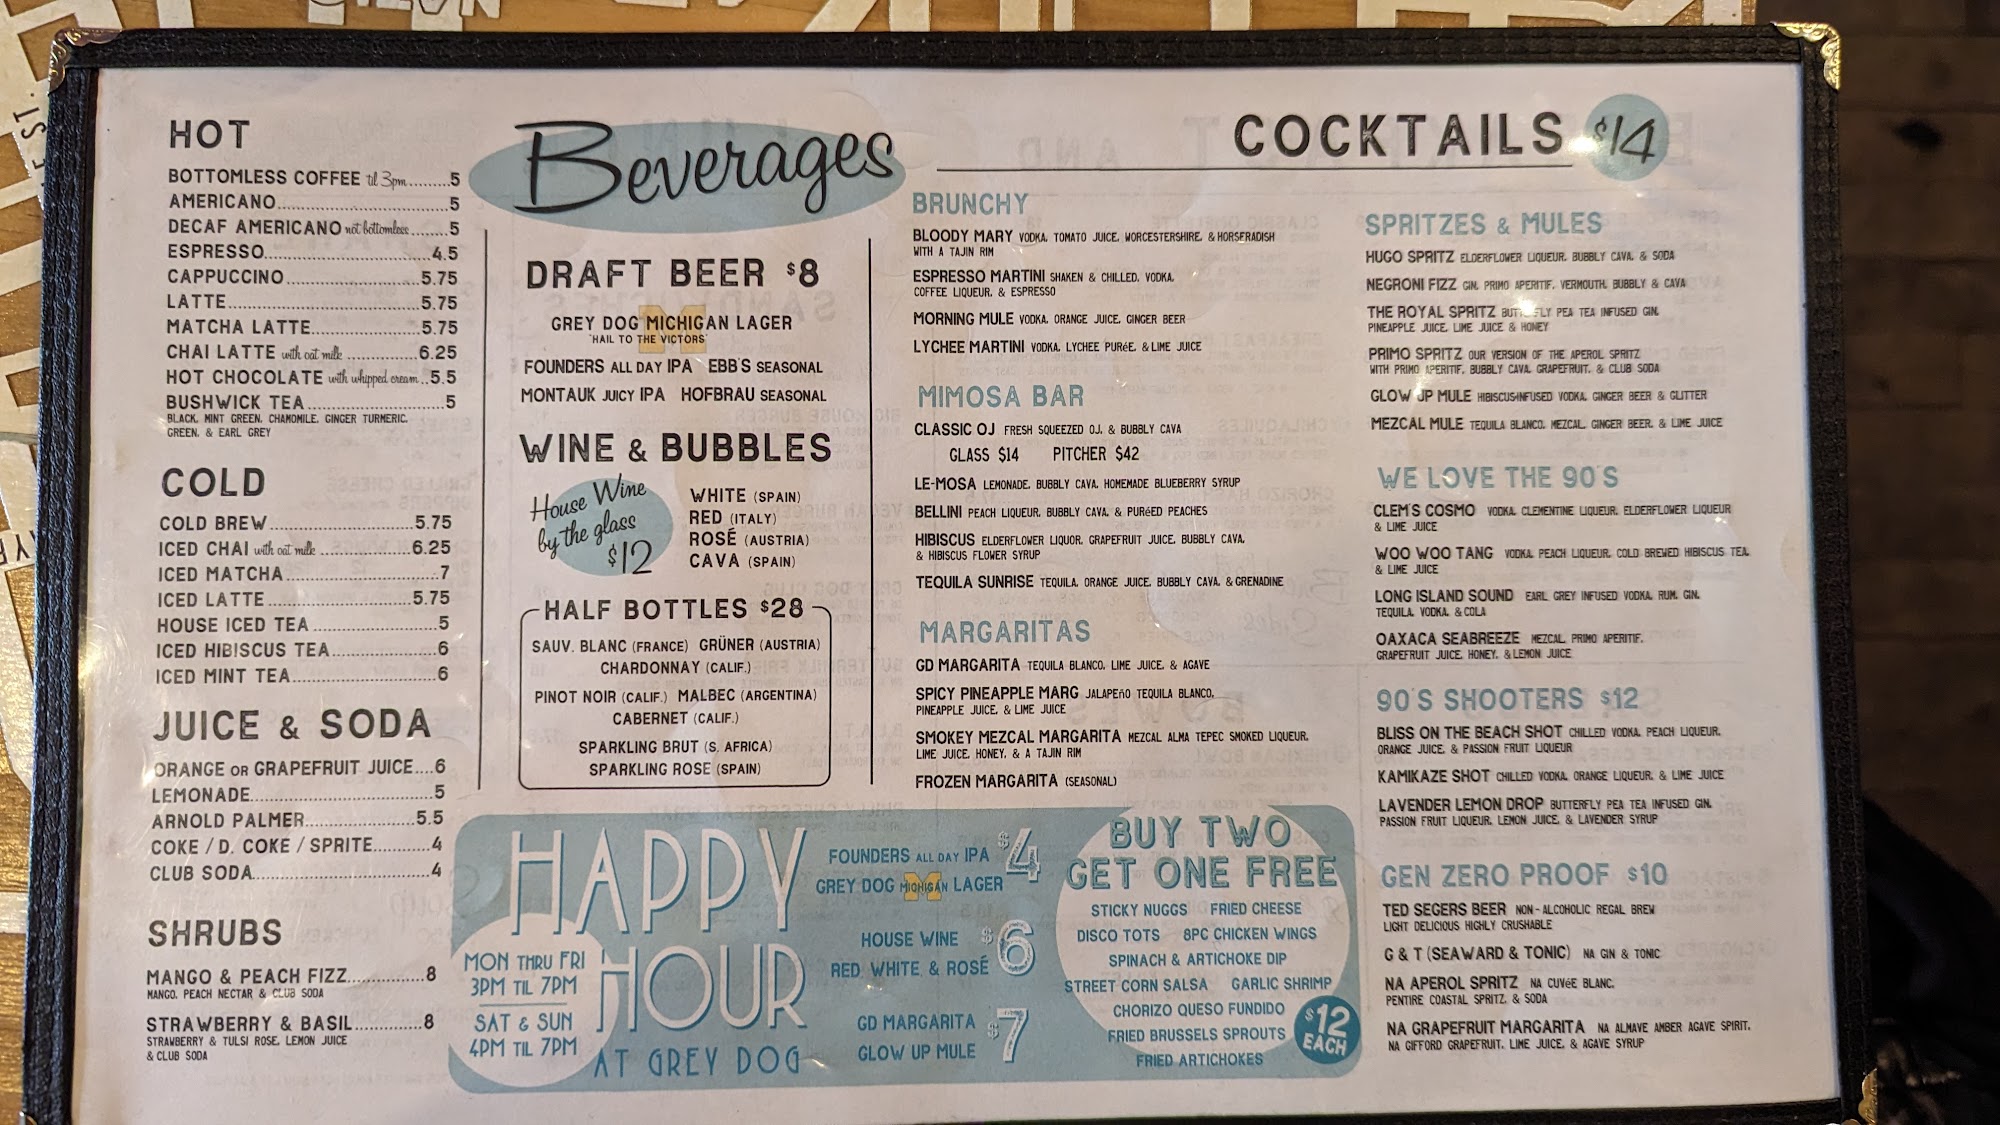 HOT
BOTTOMLESS COFFEE til 3pm.........5
AMERICANO.........5
DECAF AMERICANO not bottomless.........5
ESPRESSO.........4.5
CAPPUCCINO.........5.75
LATTE.........5.75
MATCHA LATTE.........5.75
CHAI LATTE with oat milk.........6.25
HOT CHOCOLATE with whipped cream..5.5
BUSHWICK TEA.........5
BLACK, MINT GREEN, CHAMOMILE, GINGER TURMERIC,
GREEN, & EARL GREY
COLD
COLD BREW.........5.75
ICED CHAI with oat milk.........6.25
ICED MATCHA.........7
ICED LATTE.........5.75
HOUSE ICED TEA.........5
ICED HIBISCUS TEA.........6
ICED MINT TEA.........6
JUICE & SODA
ORANGE OR GRAPEFRUIT JUICE....6
LEMONADE.........5
ARNOLD PALMER.........5.5
COKE / D. COKE / SPRITE.........4
CLUB SODA.........4
SHRUBS
MANGO & PEACH FIZZ.........8
MANGO, PEACH NECTAR & CLUB SODA
STRAWBERRY & BASIL.........8
STRAWBERRY & TULSI ROSE, LEMON JUICE
& CLUB SODA
Beverages
DRAFT BEER $8
GREY DOG MICHIGAN LAGER
"HAIL TO THE VICTORS"
FOUNDERS ALL DAY IPA EBB'S SEASONAL
MONTAUK JUICY IPA HOFBRAU SEASONAL
WINE & BUBBLES
House Wine
by the glass
$12
WHITE (SPAIN)
RED (ITALY)
ROSÉ (AUSTRIA)
CAVA (SPAIN)
HALF BOTTLES $28
SAUV. BLANC (FRANCE) GRÜNER (AUSTRIA)
CHARDONNAY (CALIF.)
PINOT NOIR (CALIF.) MALBEC (ARGENTINA)
CABERNET (CALIF.)
SPARKLING BRUT (S. AFRICA)
SPARKLING ROSE (SPAIN)
COCKTAILS $14
BRUNCHY
BLOODY MARY VODKA, TOMATO JUICE, WORCESTERSHIRE, & HORSERADISH
WITH A TAJIN RIM
ESPRESSO MARTINI SHAKEN & CHILLED, VODKA,
COFFEE LIQUEUR, & ESPRESSO
MORNING MULE VODKA, ORANGE JUICE, GINGER BEER
LYCHEE MARTINI VODKA, LYCHEE PURéE, & LIME JUICE
MIMOSA BAR
CLASSIC OJ FRESH SQUEEZED OJ, & BUBBLY CAVA
GLASS $14 PITCHER $42
LE-MOSA LEMONADE, BUBBLY CAVA, HOMEMADE BLUEBERRY SYRUP
BELLINI PEACH LIQUEUR, BUBBLY CAVA, & PURéED PEACHES
HIBISCUS ELDERFLOWER LIQUOR, GRAPEFRUIT JUICE, BUBBLY CAVA,
& HIBISCUS FLOWER SYRUP
TEQUILA SUNRISE TEQUILA, ORANGE JUICE, BUBBLY CAVA, & GRENADINE
MARGARITAS
GD MARGARITA TEQUILA BLANCO, LIME JUICE, & AGAVE
SPICY PINEAPPLE MARG JALAPEñO TEQUILA BLANCO,
PINEAPPLE JUICE, & LIME JUICE
SMOKEY MEZCAL MARGARITA MEZCAL ALMA TEPEC SMOKED LIQUEUR,
LIME JUICE, HONEY, & A TAJIN RIM
FROZEN MARGARITA (SEASONAL)
SPRITZES & MULES
HUGO SPRITZ ELDERFLOWER LIQUEUR, BUBBLY CAVA, & SODA
NEGRONI FIZZ GIN, PRIMO APERITIF, VERMOUTH, BUBBLY & CAVA
THE ROYAL SPRITZ BUTTERFLY PEA TEA INFUSED GIN,
PINEAPPLE JUICE, LIME JUICE & HONEY
PRIMO SPRITZ OUR VERSION OF THE APEROL SPRITZ
WITH PRIMO APERITIF, BUBBLY CAVA, GRAPEFRUIT, & CLUB SODA
GLOW UP MULE HIBISCUS-INFUSED VODKA, GINGER BEER & GLITTER
MEZCAL MULE TEQUILA BLANCO, MEZCAL, GINGER BEER, & LIME JUICE
WE LOVE THE 90'S
CLEM'S COSMO VODKA, CLEMENTINE LIQUEUR, ELDERFLOWER LIQUEUR
& LIME JUICE
WOO WOO TANG VODKA, PEACH LIQUEUR, COLD BREWED HIBISCUS TEA,
& LIME JUICE
LONG ISLAND SOUND EARL GREY INFUSED VODKA, RUM, GIN,
TEQUILA, VODKA, & COLA
OAXACA SEABREEZE MEZCAL, PRIMO APERITIF,
GRAPEFRUIT JUICE, HONEY, & LEMON JUICE
90'S SHOOTERS $12
BLISS ON THE BEACH SHOT CHILLED VODKA, PEACH LIQUEUR,
ORANGE JUICE, & PASSION FRUIT LIQUEUR
KAMIKAZE SHOT CHILLED VODKA, ORANGE LIQUEUR, & LIME JUICE
LAVENDER LEMON DROP BUTTERFLY PEA TEA INFUSED GIN,
PASSION FRUIT LIQUEUR, LEMON JUICE, & LAVENDER SYRUP
GEN ZERO PROOF $10
TED SEGERS BEER NON-ALCOHOLIC REGAL BREW
LIGHT DELICIOUS HIGHLY CRUSHABLE
G & T (SEAWARD & TONIC) NA GIN & TONIC
NA APEROL SPRITZ NA CUVéE BLANC,
PENTIRE COASTAL SPRITZ, & SODA
NA GRAPEFRUIT MARGARITA NA ALMAVE AMBER AGAVE SPIRIT,
NA GIFFORD GRAPEFRUIT, LIME JUICE, & AGAVE SYRUP
HAPPY
HOUR
AT GREY DOG
MON THRU FRI
3PM TIL 7PM
SAT & SUN
4PM TIL 7PM
FOUNDERS ALL DAY IPA
GREY DOG MICHIGAN LAGER
$4
HOUSE WINE
RED, WHITE, & ROSÉ
$6
GD MARGARITA
GLOW UP MULE
$7
BUY TWO
GET ONE FREE
STICKY NUGGS FRIED CHEESE
DISCO TOTS 8PC CHICKEN WINGS
SPINACH & ARTICHOKE DIP
STREET CORN SALSA GARLIC SHRIMP
CHORIZO QUESO FUNDIDO
FRIED BRUSSELS SPROUTS
FRIED ARTICHOKES
$12
EACH